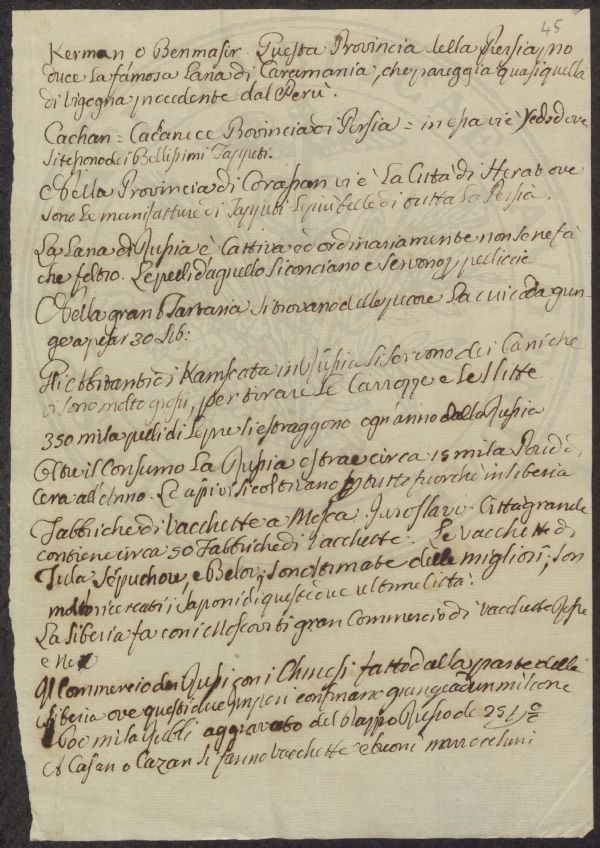 45
Kerman o Benmasir. Questa Provincia della Persia, pro
duce La famosa Lana di Caramania, che pareggia quasi quella
di Vigogna procedente dal Perù.
Cachan = Provincia di Persia = in essa vi è Yeds dove
si tessono dei Bellissimi Tappeti.
Nella Provincia di Corassan vi è La Città di Herat ove
sono Le manifatture di Tappeti Le più belle di tutta La Persia.
La Lana di Rusia è Cattiva ed ordinariamente non se ne fà
che feltro. Le pelli d'agnello si conciano e servono p pellicie
Nella gran Tartaria si trovano delle pecore La cui coda giun-
ge a pesar 30 Lib:
Gli abbitanti di Kamscata in Rusia si servono dei Cani che
vi sono molto grossi, per tirare Le Carrozze e Le Slitte.
350 mila pelli di Lepre si estraggono ogni anno dalla Rusia
Oltre il Consumo La Rusia estrae circa 15 mila Poudi,
Cera all'Anno. Le api vi si coltivano p tutto fuorchè in Siberia
Fabbriche di Vacchette a Mosca Juroslavv. Città grande
contiene circa 50 Fabbriche di Vacchette. Le Vacchette di
Tula Serpuchow, e Belov, son stimate delle migliori; son
molto ricercati i saponi di queste due ultime Città.
La Siberia fa con i Moscoviti gran Commercio di Vacchette Rosse
e Ne
Il Commercio dei Rusi con i Chinesi fatto dalla parte della
Siberia ove questi due Imperi confinano giunge ad un milione
800 mila Rubli aggravato del Dazzo Russo de 25 p c
A Casan o Cazan si fanno Vacchette e buoni marrocchini